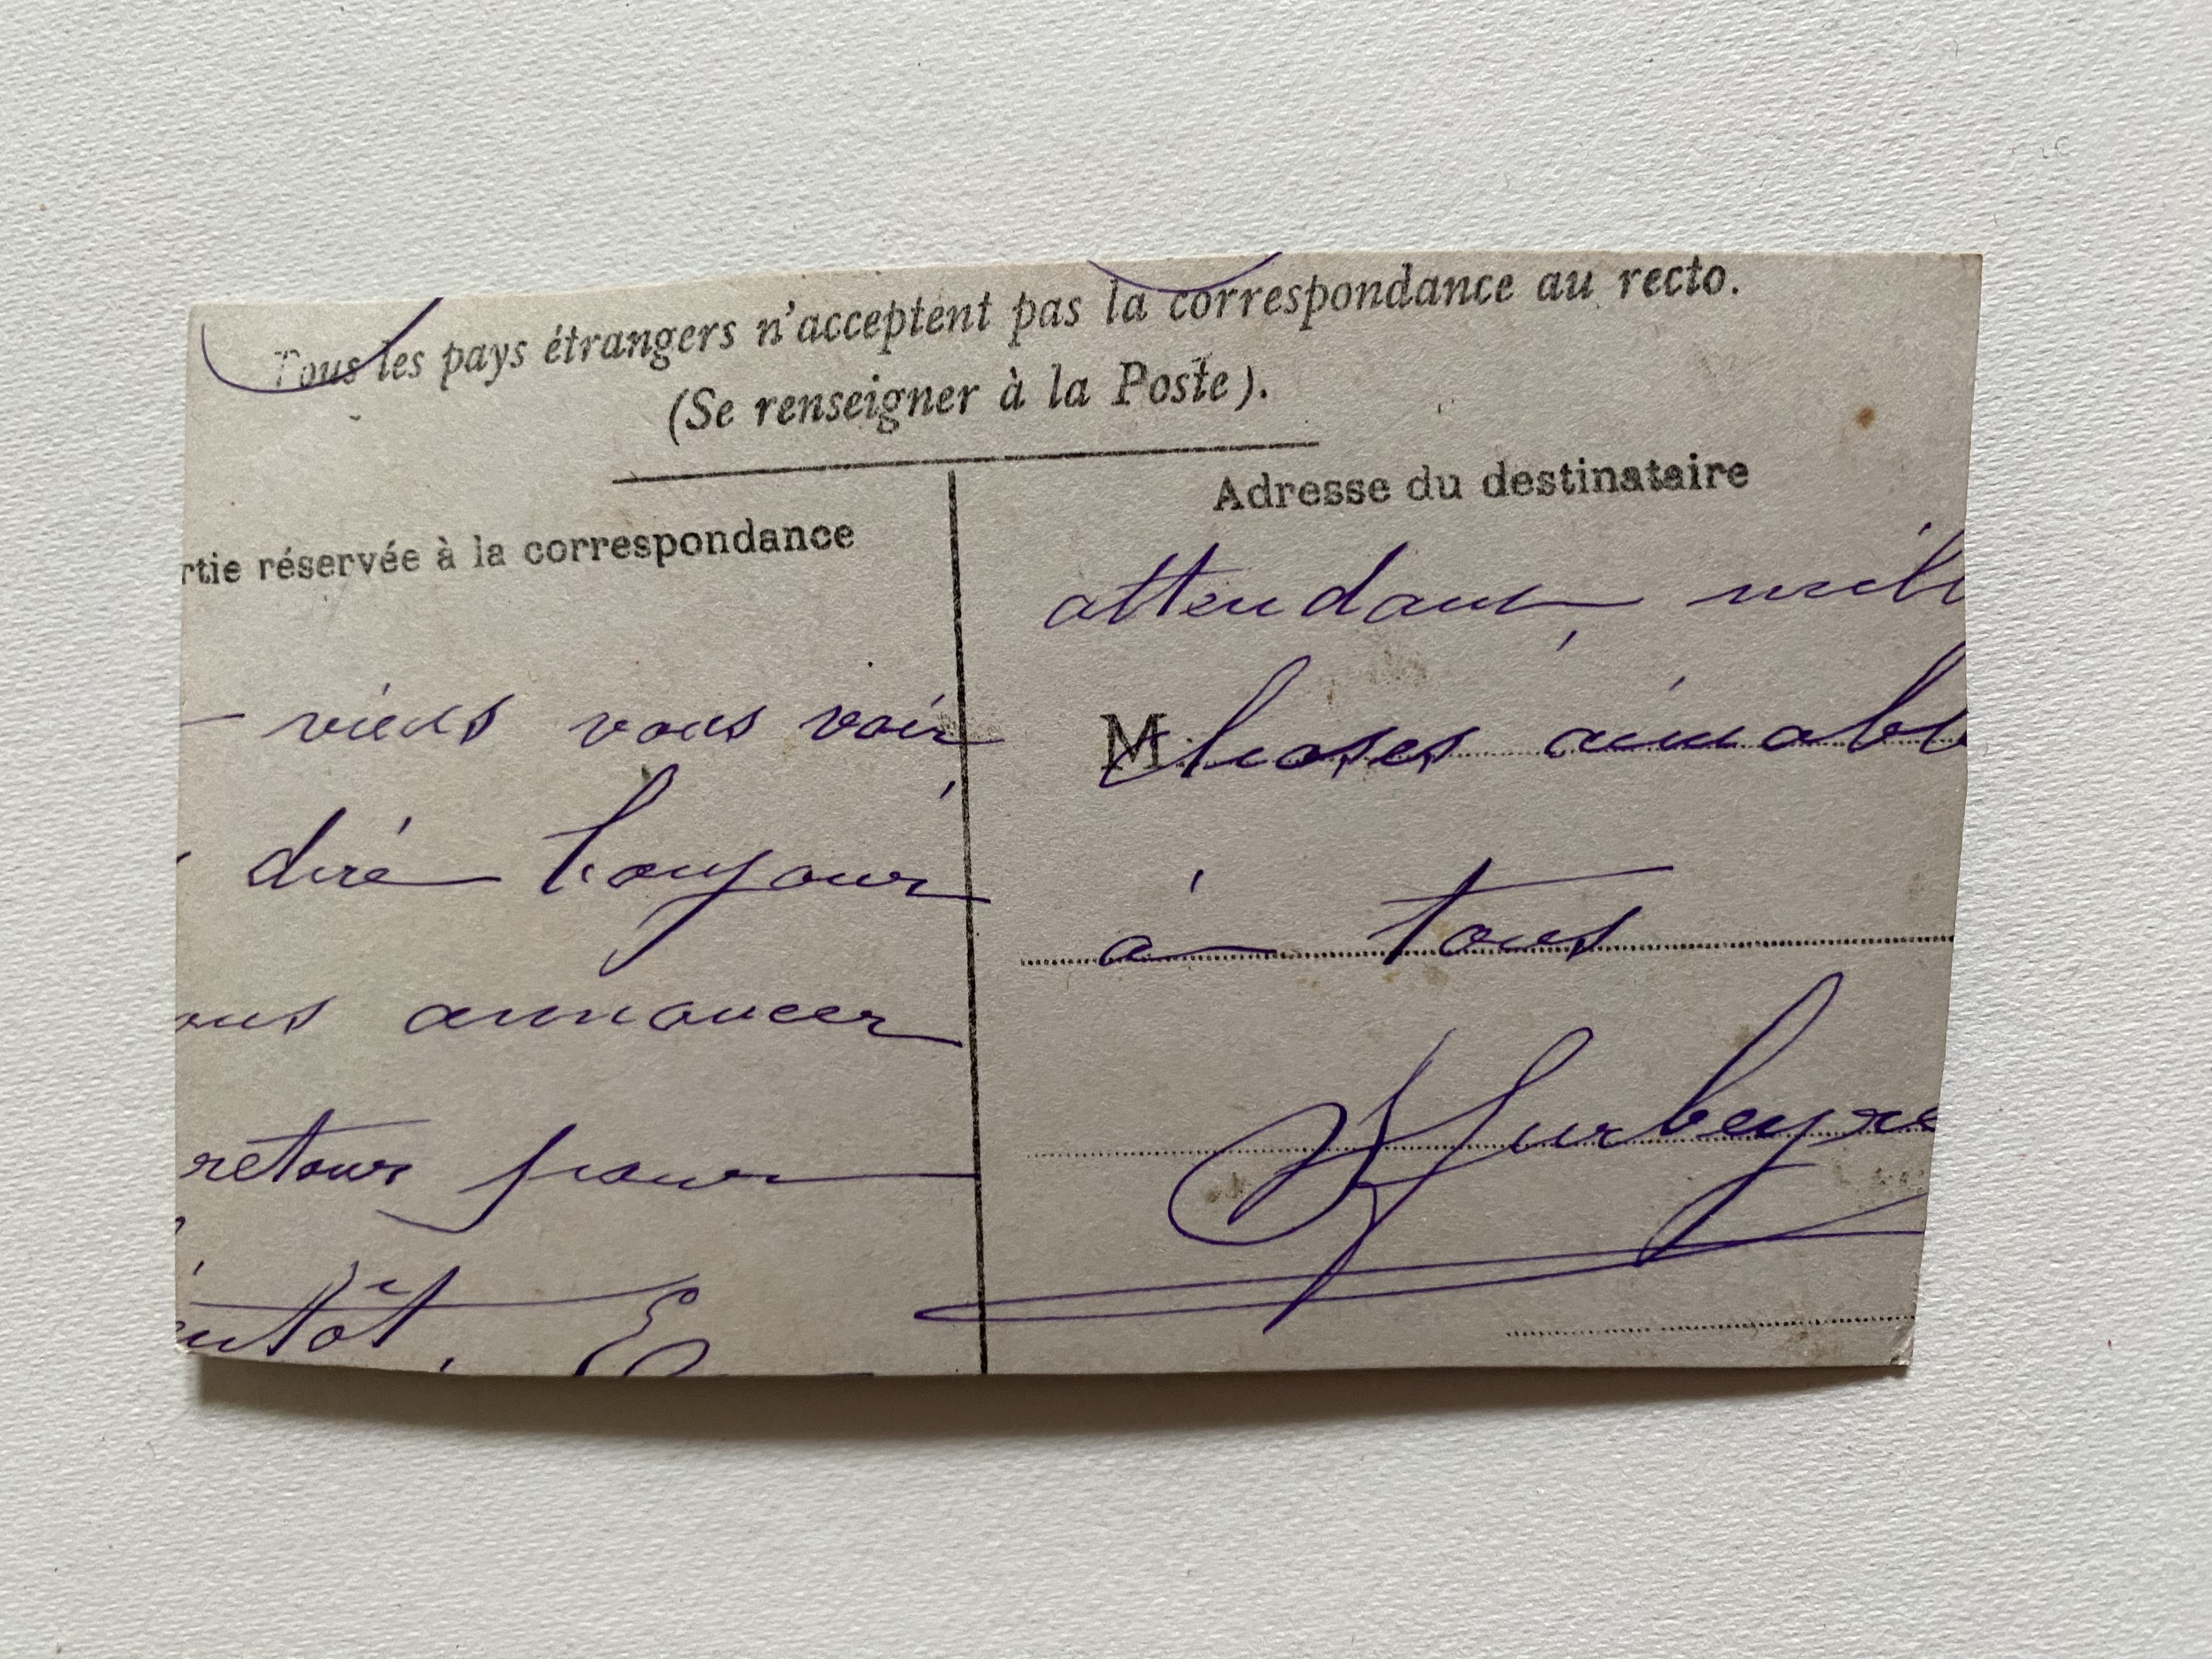 Tous les pays étrangers n'acceptent pas la correspondance au recto.
(Se renseigner à la Poste).
rtie réservée à la correspondance
viens vous voir,
dire bonjour
ous annoncer
retour pour
entôt, E
Adresse du destinataire
attendant, mill
M
choses aimabl
à tous